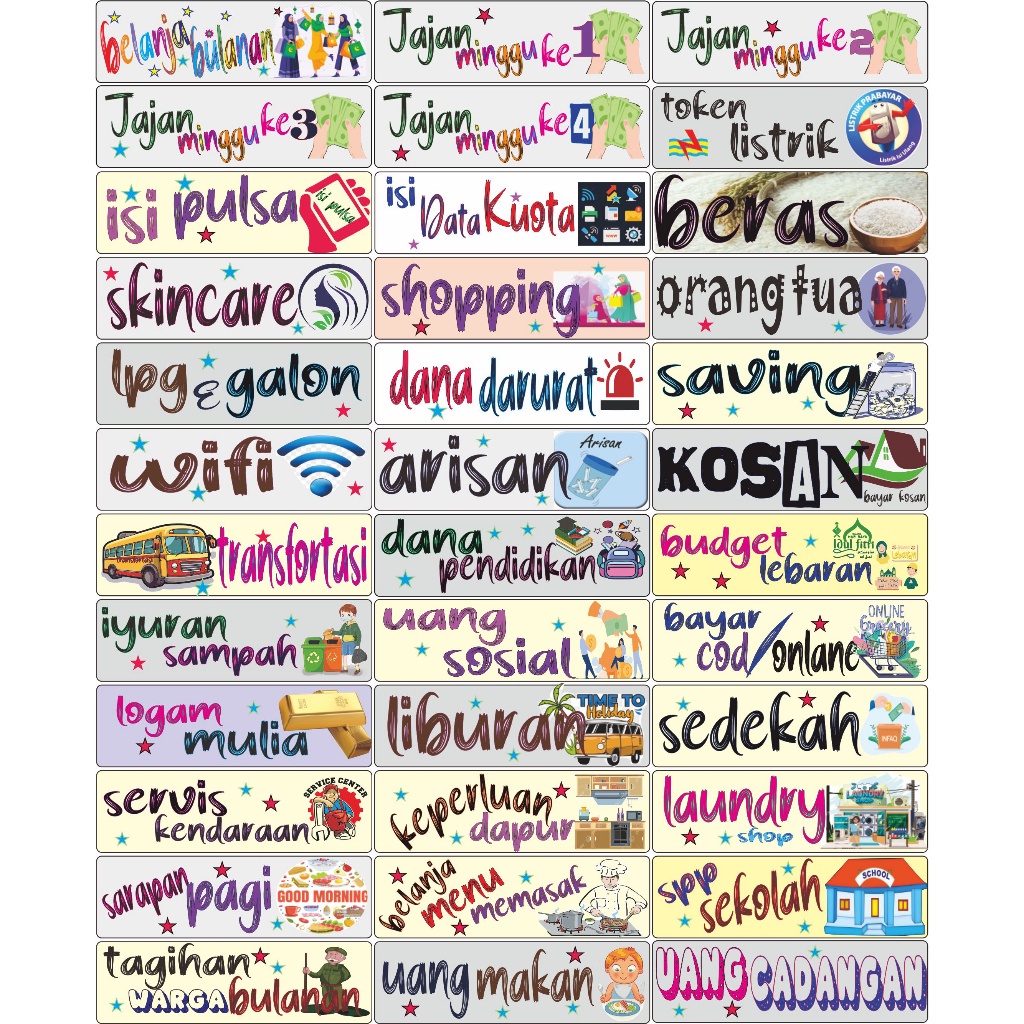 belanja bulanan
Jajan minggu ke 1
Jajan minggu ke 2
Jajan minggu ke 3
Jajan minggu ke 4
token listrik
LISTRIK PRABAYAR
Listrik Isi Ulang
isi pulsa
isi pulsa
isi Data Kuota
beras
skincare
shopping
orang tua
lpg & galon
dana darurat
saving
wifi
arisan
Arisan
KOSAN
bayar kosan
transfortasi
dana pendidikan
budget lebaran
idul fitri
iyuran sampah
uang sosial
bayar cod/onlane
ONLINE
Grocery
logam mulia
liburan
TIME TO
Holiday
sedekah
INFAQ
servis kendaraan
SERVICE CENTER
keperluan dapur
laundry shop
LAUNDRY
sarapan pagi
GOOD MORNING
belanja menu memasak
spp sekolah
SCHOOL
tagihan WARGA bulanan
uang makan
UANG CADANGAN